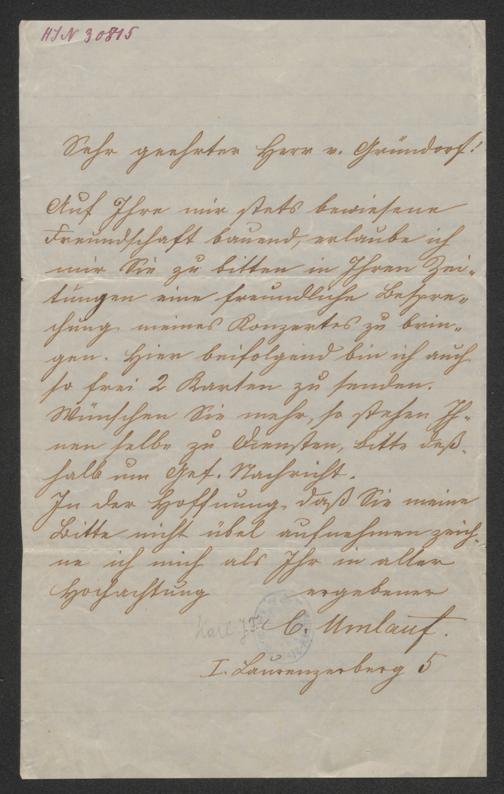 HIN 30815
Sehr geehrter Herr v. Gründorf!
Auf Ihre mir stets bewiesene
Freundschaft bauend, erlaube ich
mir Sie zu bitten in Ihren Zei-
tungen eine freundliche Bespre-
chung meines Konzertes zu brin-
gen. Hier beifolgend bin ich auch
so frei 2 Karten zu senden.
Wünschen Sie mehr, so stehen Ih-
nen selbe zu Diensten, bitte deß-
halb um Gef. Nachricht.
In der Hoffnung, daß Sie meine
Bitte nicht übel aufnehmen zeich-
ne ich mich als Ihr in aller
Hochachtung ergebener
Karl C. Umlauf.
I. Laurenzerberg 5